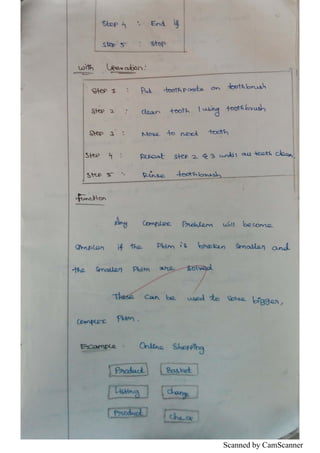 Step 4 : End if
Step 5 : Stop
With Iteration:
Step 1 : Put toothpaste on toothbrush
Step 2 : Clean tooth 1 using toothbrush
Step 3 : Move to next tooth
Step 4 : Repeat step 2 & 3 until all teeth clean
Step 5 : Rinse toothbrush
function
Any Complex Problem will become
Simpler if the Pblm is broken smaller and
the smaller Pblm are solved
These can be used to solve bigger,
Complex Pblm.
Example : Online Shopping
Product Basket
Listing Change
Product Check
Scanned by CamScanner